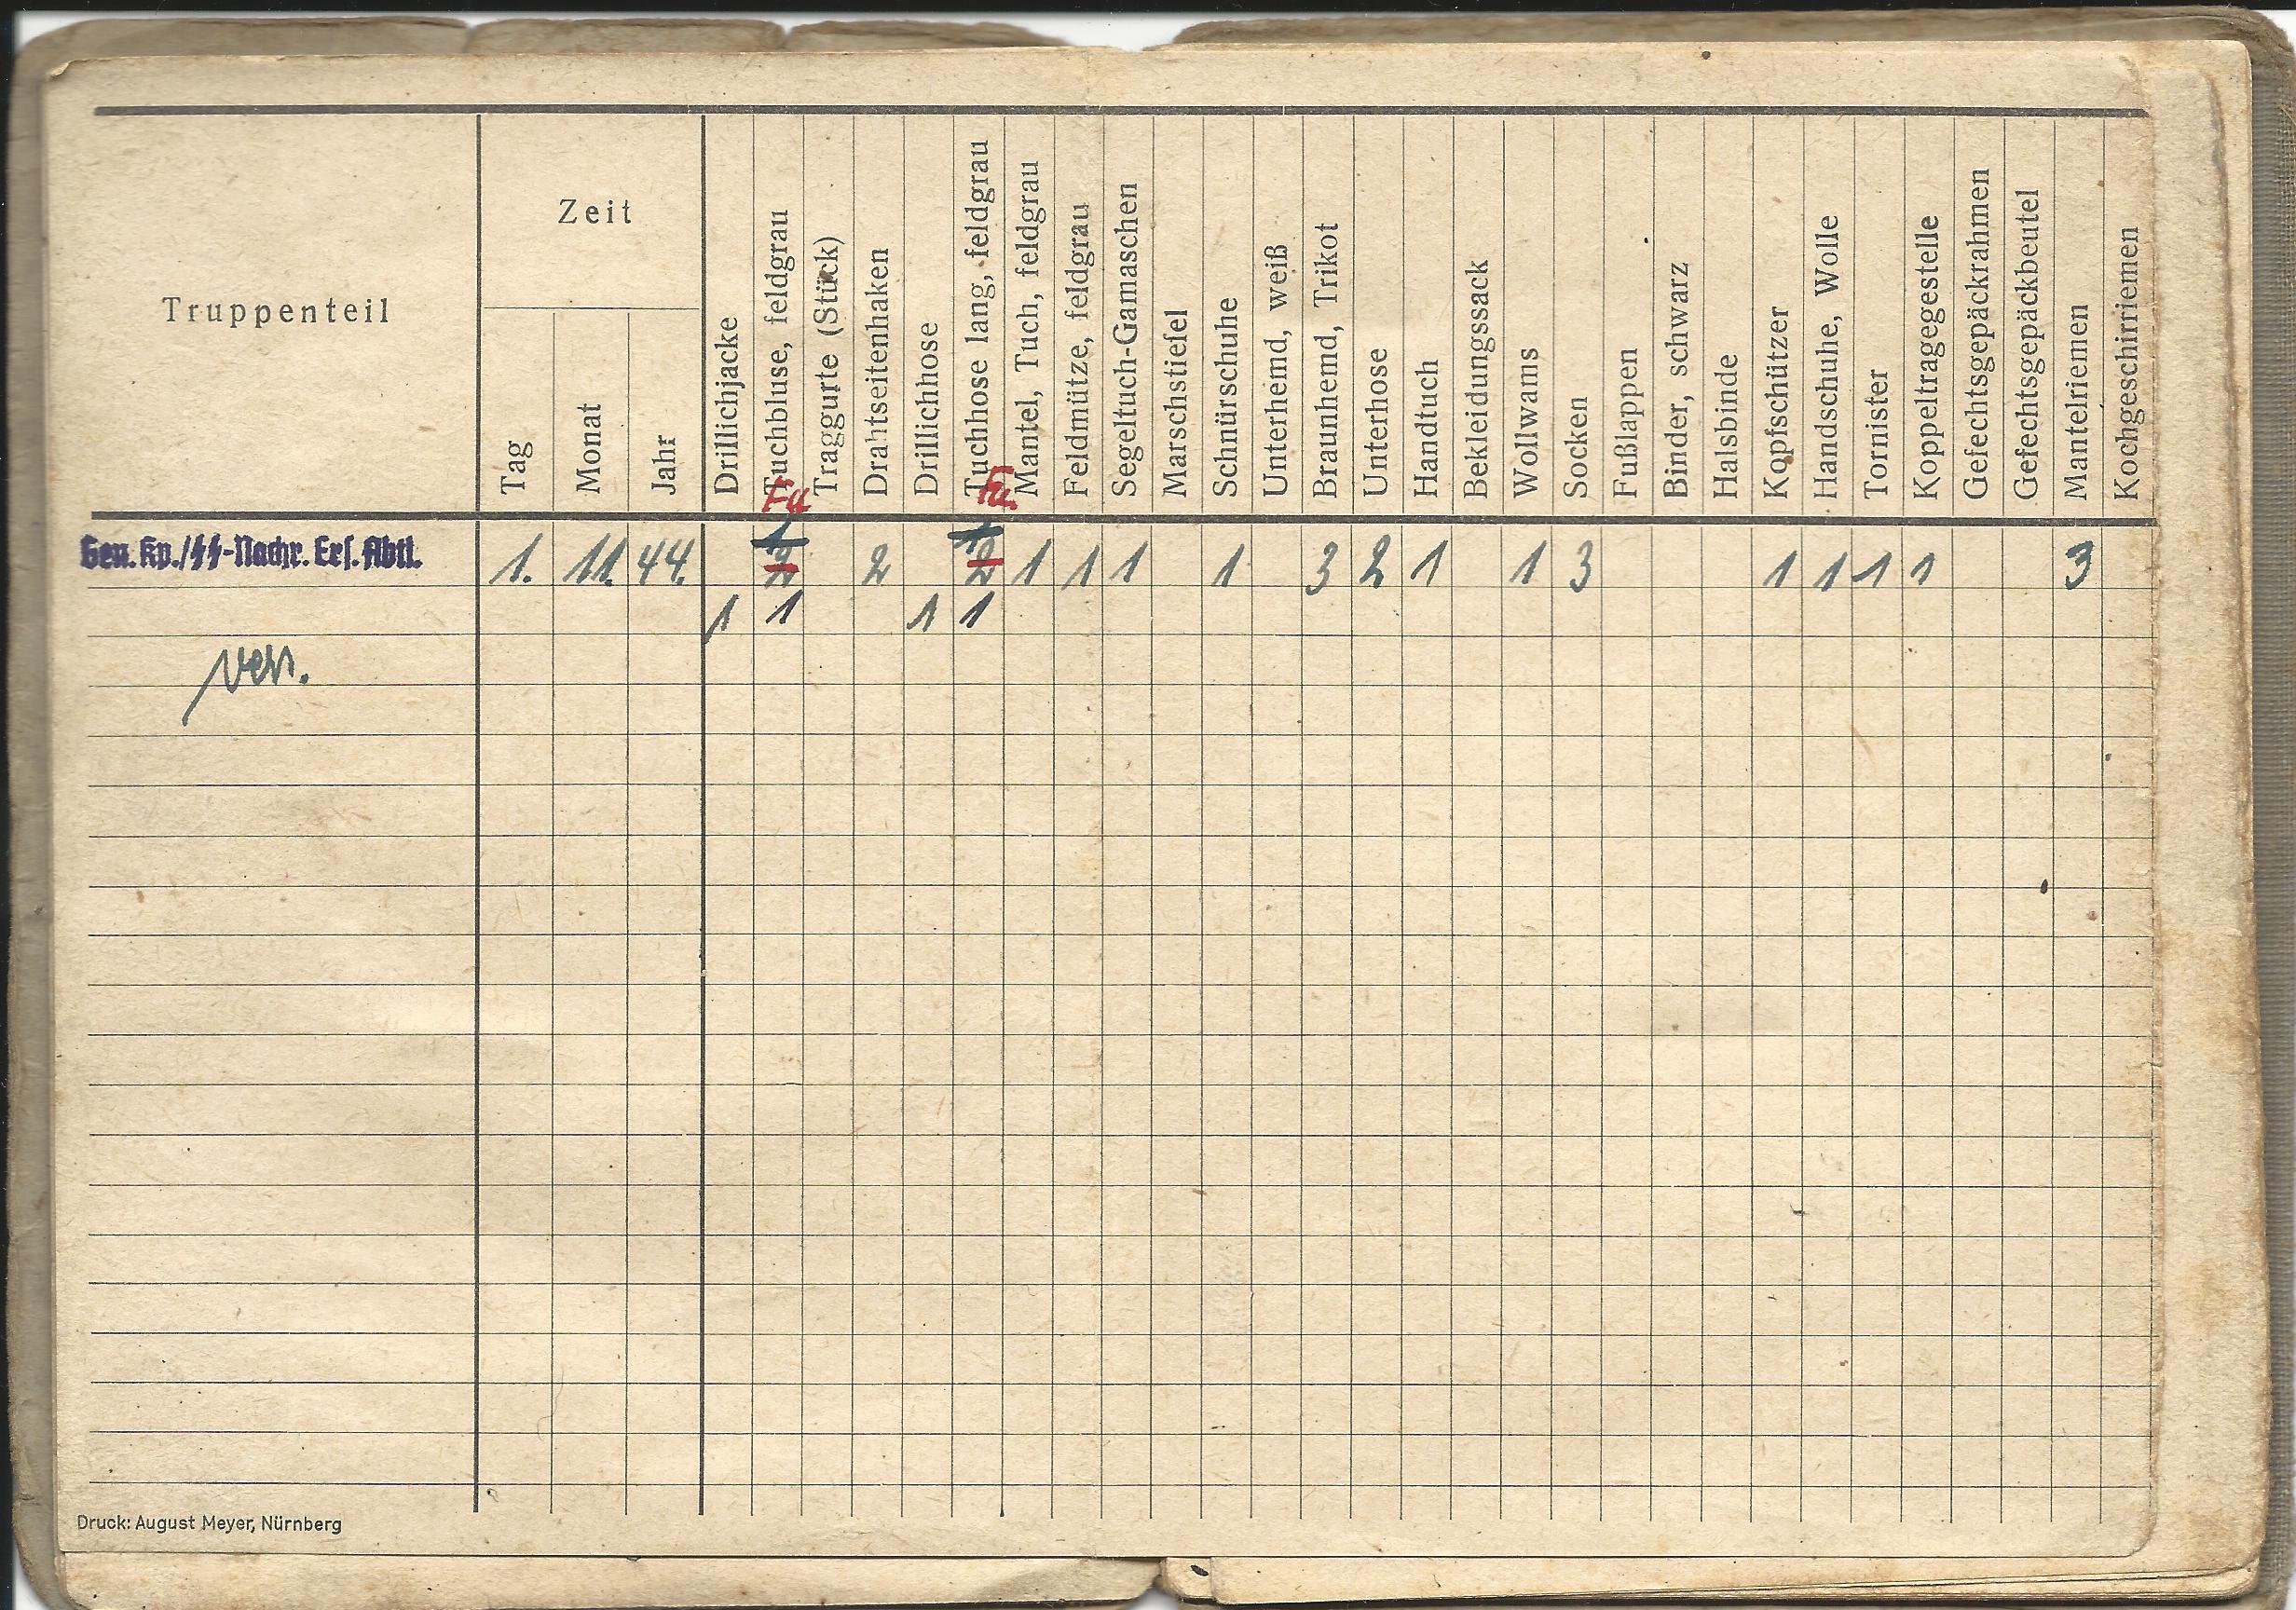 Truppenteil
Zeit
Tag
Monat
Jahr
Drillichjacke
Tuchbluse, feldgrau
Traggurte (Stück)
Drahtseitenhaken
Drillichhose
Tuchhose lang, feldgrau
Mantel, Tuch, feldgrau
Feldmütze, feldgrau
Segeltuch-Gamaschen
Marschstiefel
Schnürschuhe
Unterhemd, weiß
Braunhemd, Trikot
Unterhose
Handtuch
Bekleidungssack
Wollwams
Socken
Fußlappen
Binder, schwarz
Halsbinde
Kopfschützer
Handschuhe, Wolle
Tornister
Koppeltragegestelle
Gefechtsgepäckrahmen
Gefechtsgepäckbeutel
Mantelriemen
Kochgeschirriemen
Fu Fu.
1 1
Gen. Kp./ᛋᛋ-Nachr. Ers. Abtl. 1. 11. 44. 2 2 2 1 1 1 1 3 2 1 1 3 1 1 1 1 3
1 1 1 1
Druck: August Meyer, Nürnberg